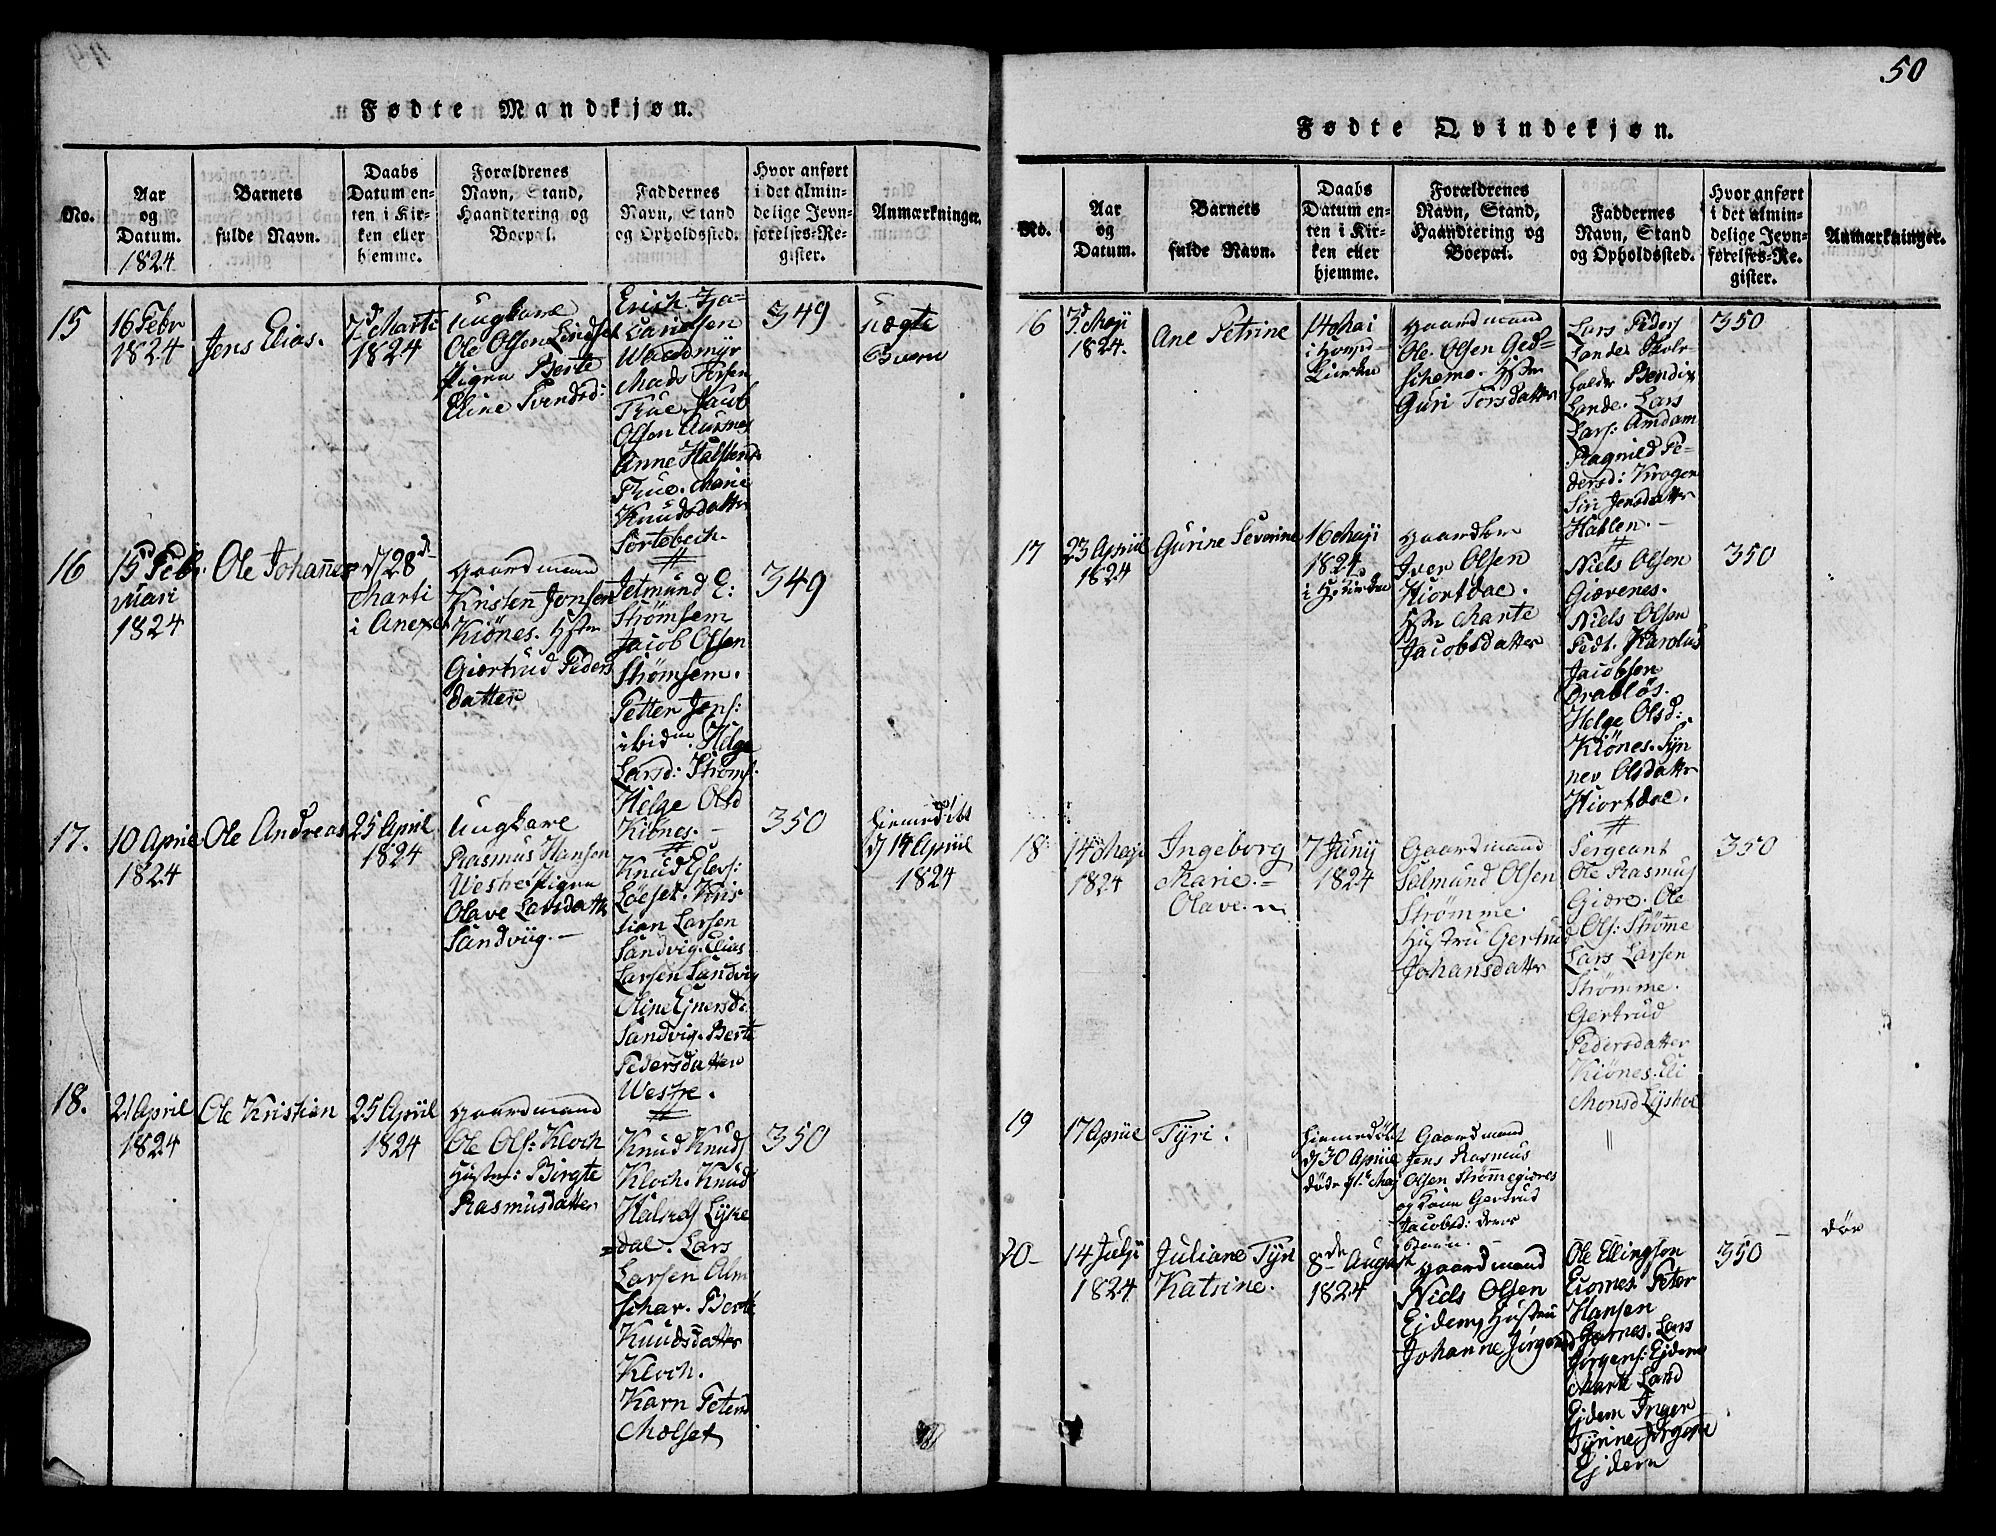 50
Fødte Mandkjøn.
No.
Aar
og
Datum.
1824
Barnets
fulde Navn.
Daabs
Datum en-
ten i Kir-
ken eller
hjemme.
Forældrenes
Navn, Stand,
Haandtering og
Boepæl.
Faddernes
Navn, Stand
og Opholdssted.
Hvor anført
i det almin-
delige Jevn-
førelses-Re-
gister.
Anmærkninger.
15
16 Febr
1824
Jens Elias.
7d Marti
1824
Ungkare
Ole Olsen Lindset
Pigen Berte
Eline Svendsd:
Erich
Mads
True. Jacob
Olsen Aursnes
Anne
True. Marie
Knudsdatter
Sortebech.
349
uægte
Barn
16
15 Feb.
Mari
1824
Ole Johannes
D 28d
Marti
i Anexet
Gaardmand
Kristen Jonsen
Kiönes. Hstr
Giertrud Peders
datter
Jetmund E:
Strømsem
Jacob Olsen
Strømsem.
Petter Jens:
ibidm. Helge
Larsd: Strøms:
Helge Olsd
Kiönes.
349
17.
10 April
1824
Ole Andreas
25 April
1824
Ungkare
Rasmus Hansen
Westre Pigen
Olave Larsdattr
Sandviig.
Knud
Löeset. Kris
tian Larsen
Sandvig. Elias
Larsen Sandvig
Oline Ejnersd:
Sandvig. Berte
Pedersdatter
Westre.
350
hiemedöbt
D 14 April
1824
18.
21 April
1824
Ole Kristian
25 April
1824
Gaardmand
Ole Ols: Kloch
Hustru: Birgte
Rasmusdatter
Knud Knuds
Kloch. Knud
dal. Lars
Larsen
Berte
Knudsdatter
Kloch.
Karn Petersd
Molset
350
Fødte Qvindekjøn.
No.
Aar
og
Datum.
Barnets
fulde Navn.
Daabs
Datum en-
ten i Kir-
ken eller
hjemme.
Forældrenes
Navn, Stand,
Haandtering og
Boepæl.
Faddernes
Navn, Stand
og Opholdssted.
Hvor anført
i det almin-
delige Jevn-
førelses-Re-
gister.
Anmærkninger.
16
3d Maji
1824.
Ane Petrine
14 Mai
i Hoved-
Kirken
Gaardmand
Ole Olsen Ged-
Hstr
Guri Torsdatter
Lars Peders
Lande Skole-
holder Bendix
Lande. Lars
Lars: Amdam
Ragnild Pe-
dersd: Krogen
Siri Jensdatter
Hatlen.
350
17
23 April
1824
Gurine Severine
16 Maji
1824
i H Kirken
Gaardbr
Iver Olsen
Hiortdal.
Hstr Marte
Jacobsdatter
Niels Olsen
Giævenes.
Niels Olsen
Fedt. Karolus
Jacobsen
Drabløs.
Helge Olsd:
Kiönes. Syn
nev Olsdattr
Hiortdal.
350
18
14 Maji
1824
Ingeborg
Marie.
Olave.
7 Junij
1824
Gaardmand
Salmund Olsen
Strømme.
Hustru Gertrud
Johansdattr
Sergeant
Ole Rasmus
Giære. Ole
Ols: Strømme
Lars Larsen
Strømme.
Gertrud
Pedersdatter
Kiönes. Eli
Monsd
350
19
17 April
Tyri.
hiemedöbt
D 30 April
döde 9t. Maj
Gaardmand
Jens Rasmus
Olsen Strømmegiæres
og Kone Gertrud
Jacobsd: deres
Barn.
"
död
20
14 Julji
1824
Juliane Tyri
Katrine.
8de August
1824
Gaardmand
Niels Olsen
Ejdem, Hustru
Johanne Jørgensd
Ole Ellingsen
Eidnes. Peter
Hansen
Lars
Jørgens: Ejdem
Marte Land
Ejdem Inger
Tyrine
Ejdem
350